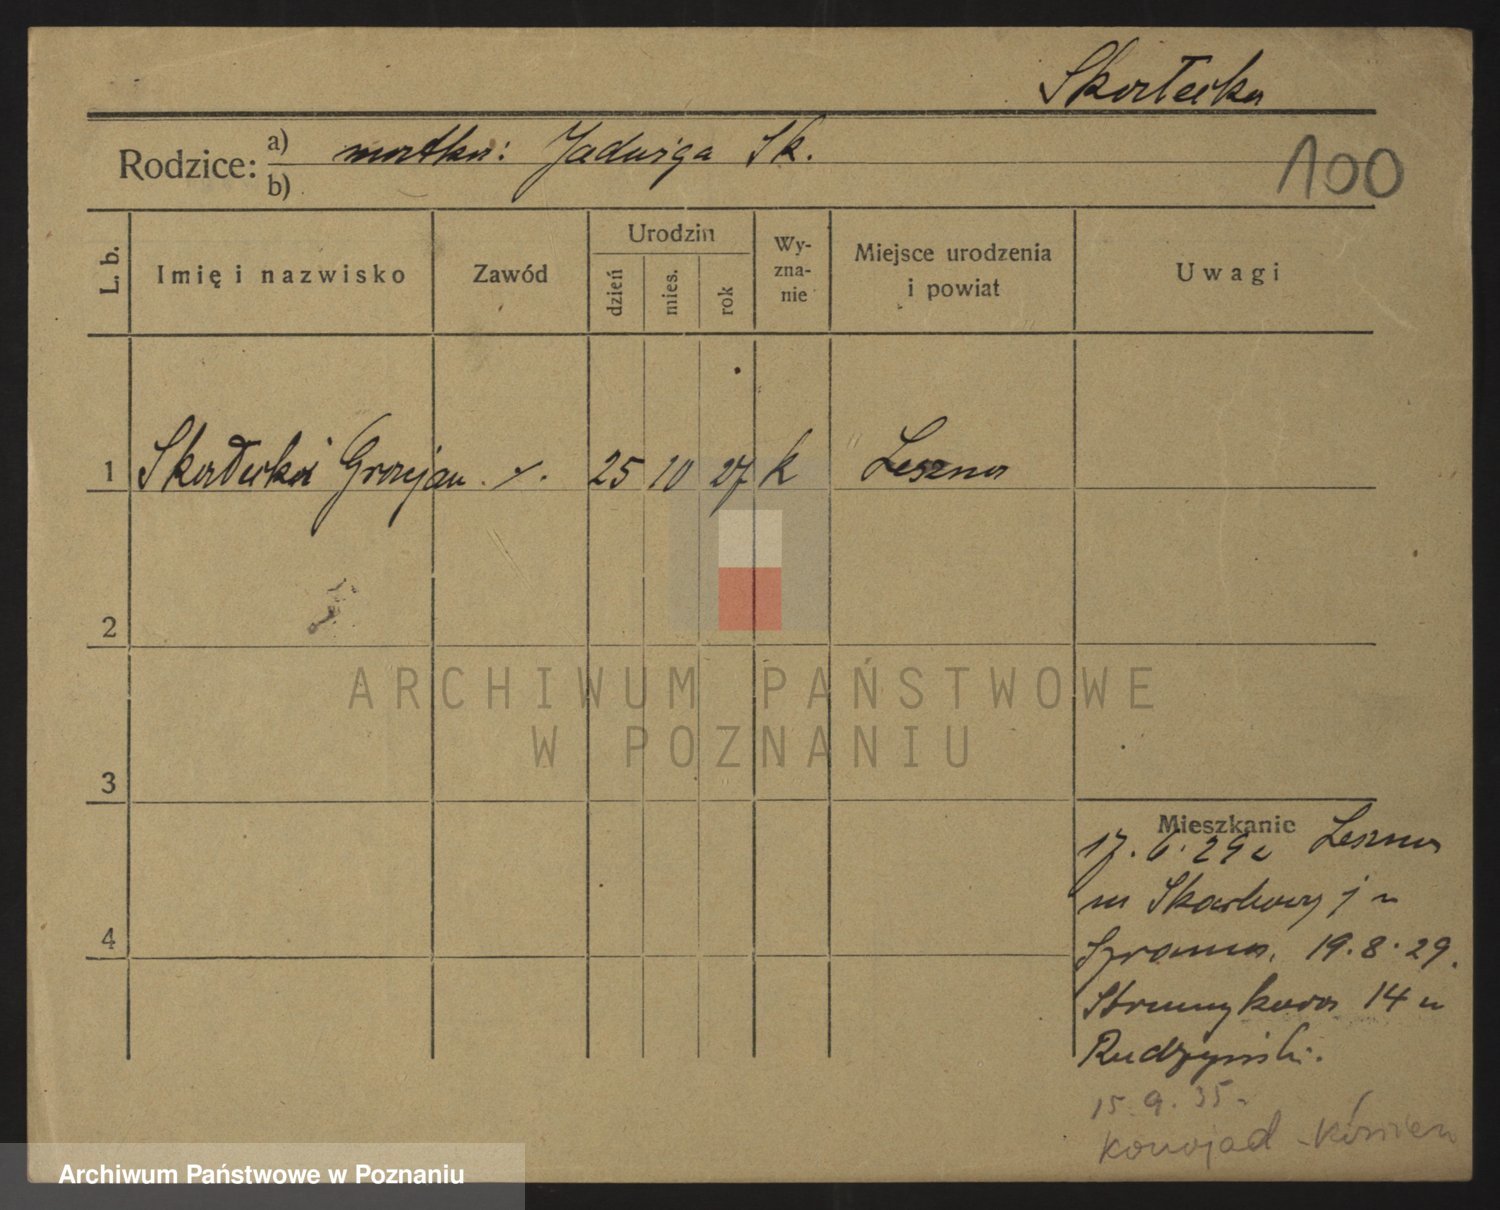 Skałecka
Rodzice: a) matka: Jadwiga Sk.
b)
100
L. b.
Imię i nazwisko
Zawód
Urodzin
dzień
mies.
rok
Wy-
zna-
nie
Miejsce urodzenia
i powiat
Uwagi
1 Skałecki 25 10 27 k Leszno
2
3
4
Mieszkanie
17. 6. 29 z Leszna
19. 8. 29.
Strumykowa 14 u
Rudzyński.
15. 9. 35.
Konojad
ARCHIWUM PAŃSTWOWE
W POZNANIU
Archiwum Państwowe w Poznaniu